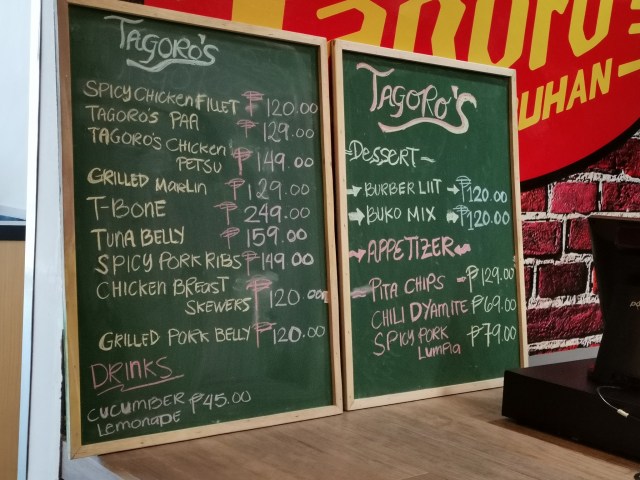 TAGORO'S
SPICY CHICKEN FILLET ₱120.00
TAGORO'S PAA ₱129.00
TAGORO'S CHICKEN
PETSU ₱149.00
GRILLED MARLIN ₱129.00
T-BONE ₱249.00
TUNA BELLY ₱159.00
SPICY PORK RIBS ₱149.00
CHICKEN BREAST
SKEWERS ₱120.00
GRILLED PORK BELLY ₱120.00
DRINKS
CUCUMBER
Lemonade ₱45.00
TAGORO'S
DESSERT
BURBER LIIT ₱120.00
BUKO MIX ₱120.00
APPETIZER
PITA CHIPS ₱129.00
CHILI DYAMITE ₱69.00
SPICY PORK
LUMPIA ₱79.00
UHAN